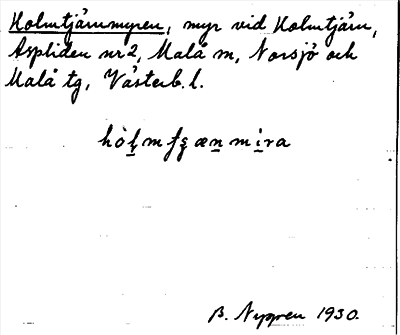 Holmtjärnmyren, myr vid Holmtjärn,
Aspliden nr 2, Malå sn, Norsjö och
Malå tg, Västerb. l.
B. Nygren 1930.